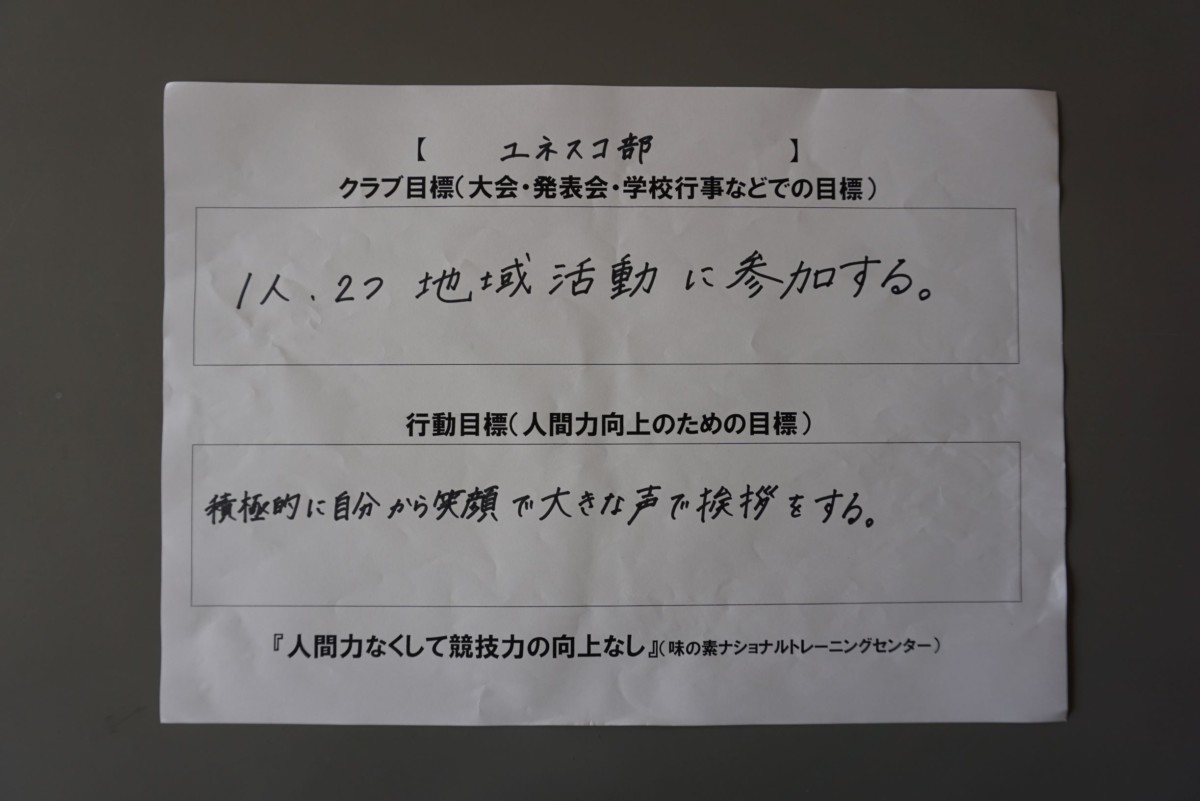 【 ユネスコ部 】
クラブ目標(大会・発表会・学校行事などでの目標)
1人、2つ 地域活動に参加する。
行動目標(人間力向上のための目標)
積極的に自分から笑顔で大きな声で挨拶をする。
『人間力なくして競技力の向上なし』(味の素ナショナルトレーニングセンター)